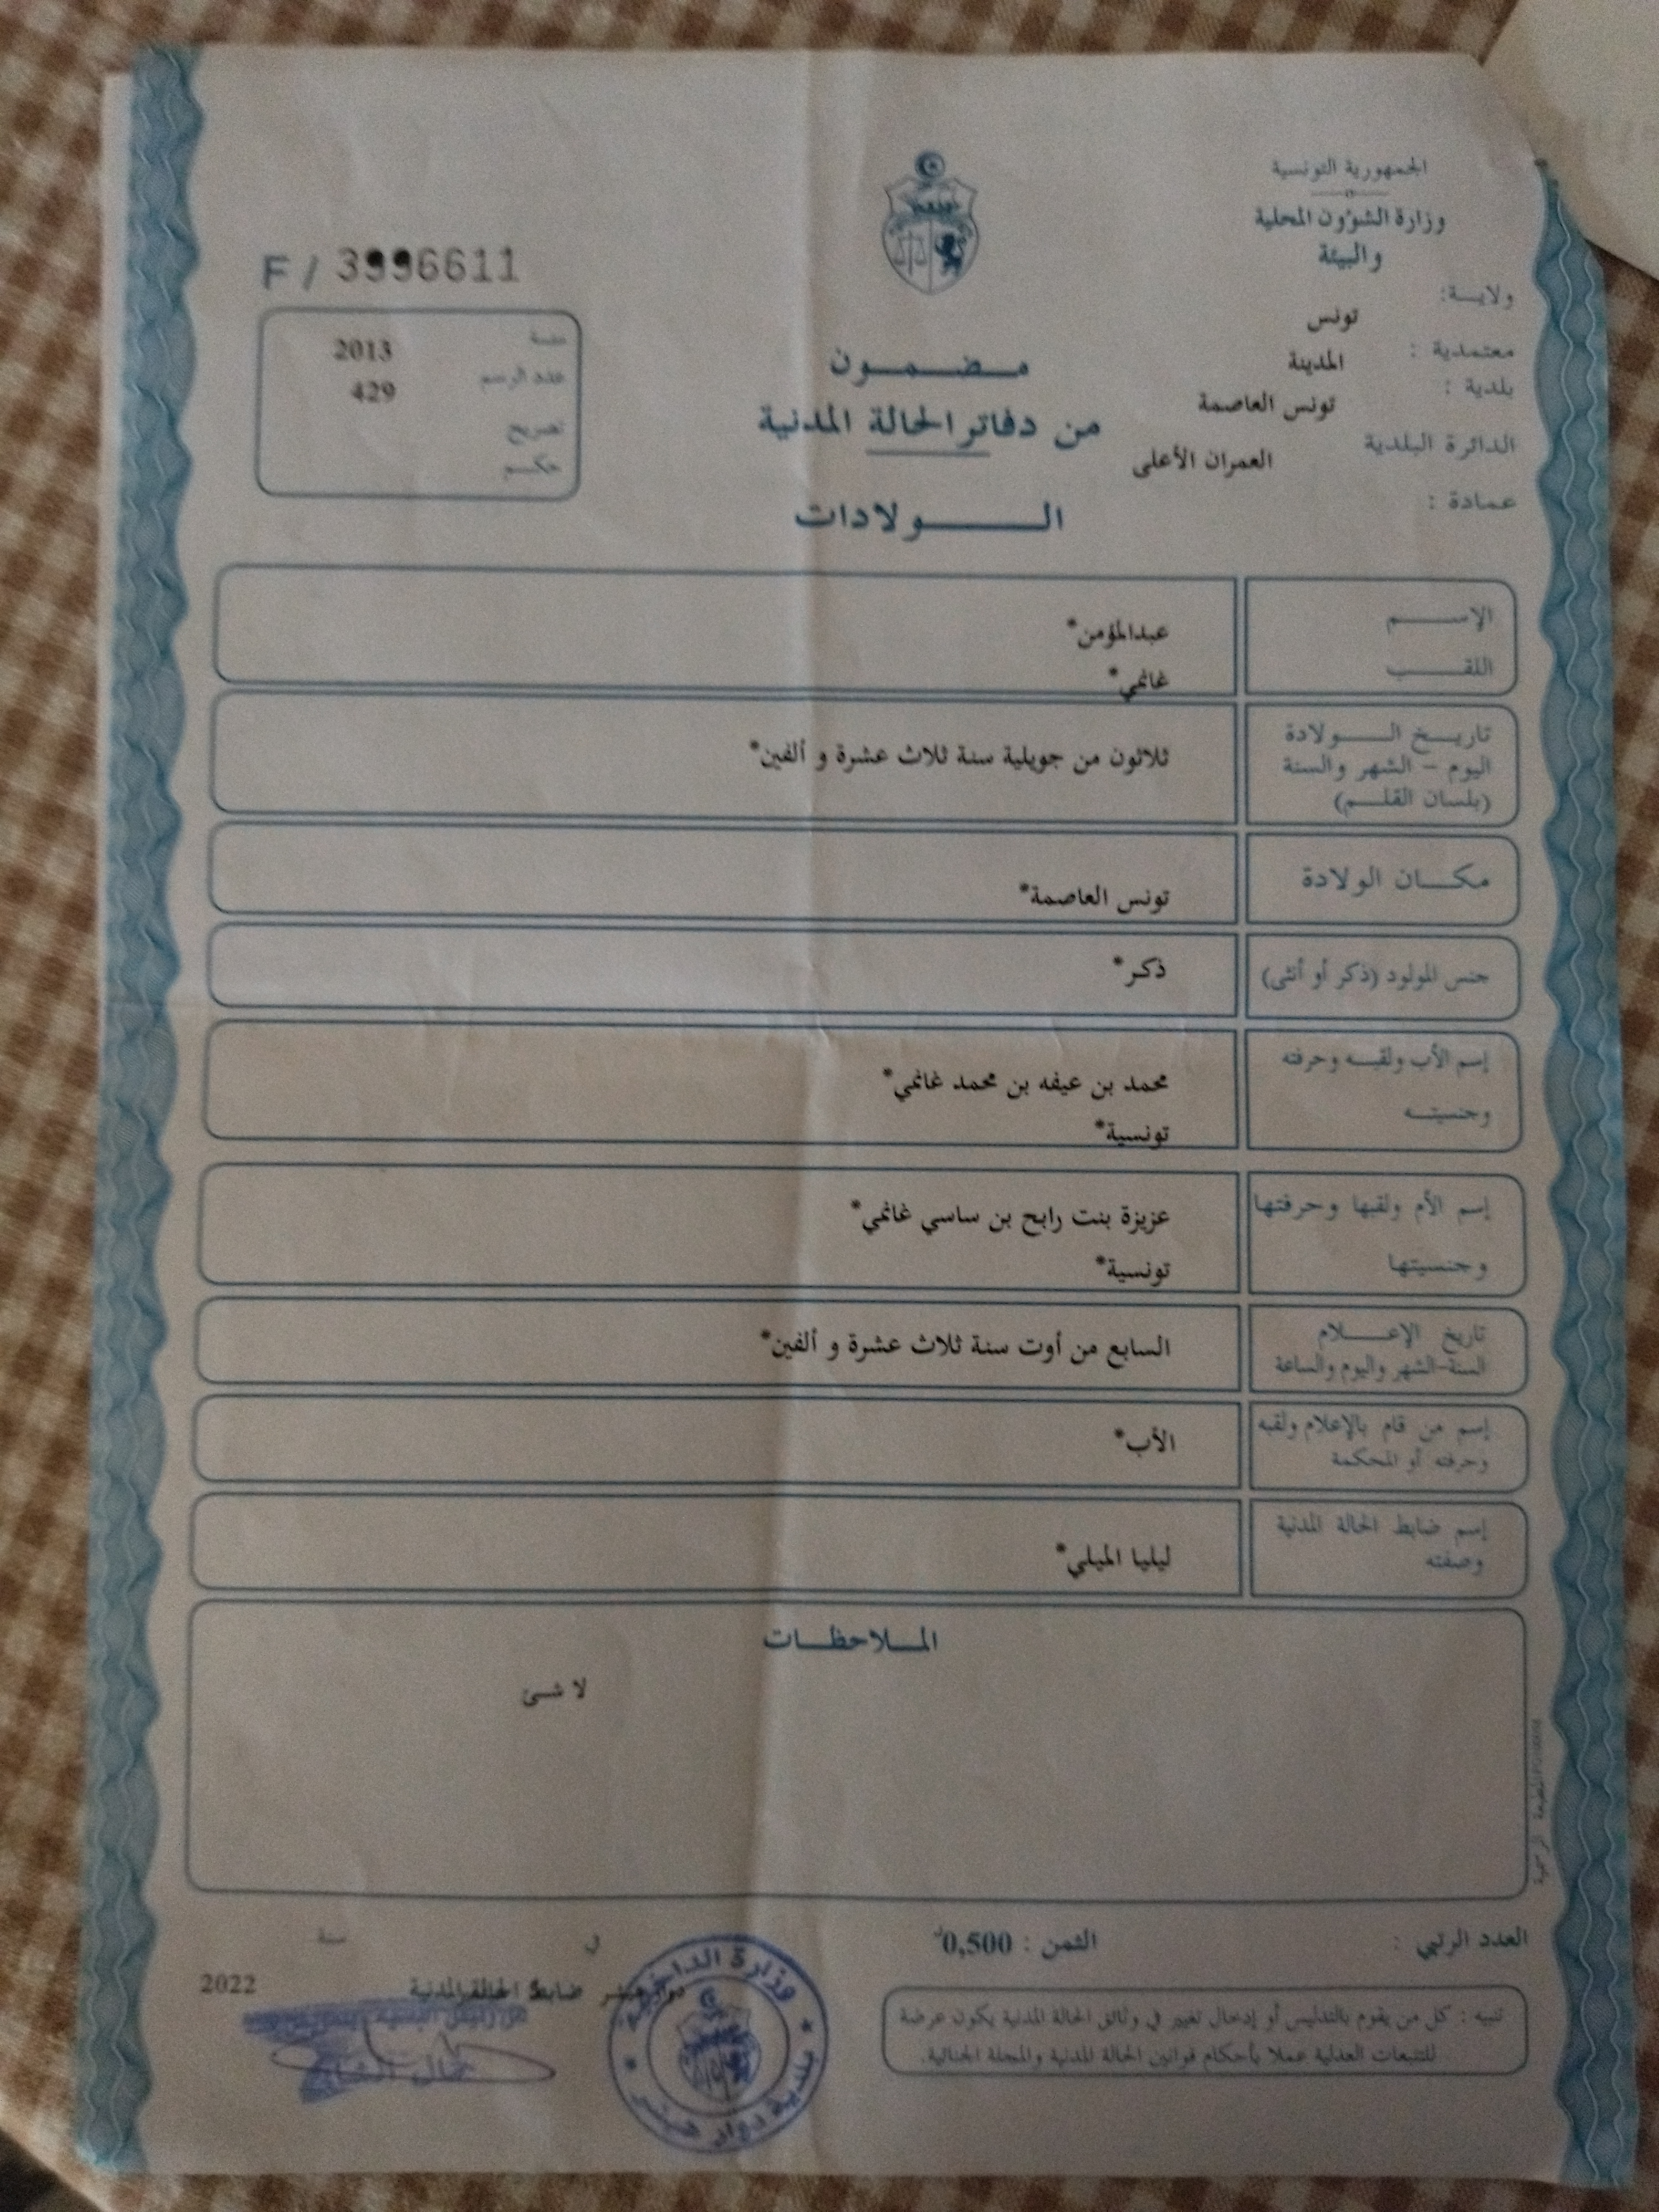 الجمهورية التونسية
وزارة الشؤون المحلية
والبيئة
ولاية:
تونس
معتمدية :
المدينة
بلدية :
تونس العاصمة
الدائرة البلدية
العمران الأعلى
عمادة :
مضمون
من دفاتر الحالة المدنية
الولادات
F / 3996611
سنة 2013
عدد الرسم 429
تصريح
حكم
الإسم عبدالمؤمن*
اللقب غانمي*
تاريخ الولادة
اليوم - الشهر والسنة
(بلسان القلم)
ثلاثون من جويلية سنة ثلاث عشرة و ألفين*
مكان الولادة
تونس العاصمة*
جنس المولود (ذكر أو أنثى) ذكر*
إسم الأب ولقبه وحرفته
وجنسيته
محمد بن عيفه بن محمد غانمي*
تونسية*
إسم الأم ولقبها وحرفتها
وجنسيتها
عزيزة بنت رابح بن ساسي غانمي*
تونسية*
تاريخ الإعلام
السنة-الشهر واليوم والساعة
السابع من أوت سنة ثلاث عشرة و ألفين*
إسم من قام بالإعلام ولقبه
وحرفته أو المحكمة
الأب*
إسم ضابط الحالة المدنية
وصفته
ليليا الميلي*
الملاحظات
لا شئ
العدد الرتبي :
الثمن : 0,500د
في
سنة
2022
دوار هيشر
ضابط الحالة المدنية
تنبيه : كل من يقوم بالتدليس أو إدخال تغيير في وثائق الحالة المدنية يكون عرضة
للتتبعات العدلية عملا بأحكام قوانين الحالة المدنية والمجلة الجنائية.
وزارة الداخلية
بلدية دوار هيشر